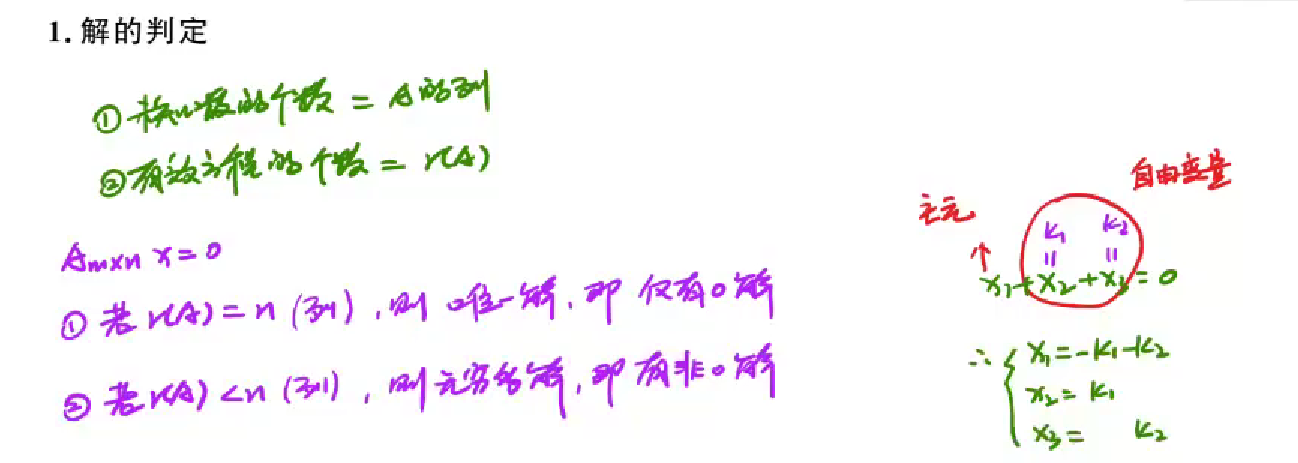 1. 解的判定
① 未知数的个数 = A的列
② 有效方程的个数 = r(A)
Aₘₓₙ x = 0
① 若 r(A) = n (列), 则 唯一解, 即 仅有0解
② 若 r(A) < n (列), 则无穷多解, 即 有非0解
自由变量
主元
k₁ k₂
↑ || ||
x₁ + x₂ + x₃ = 0
∴ { x₁ = -k₁ - k₂
x₂ = k₁
x₃ = k₂